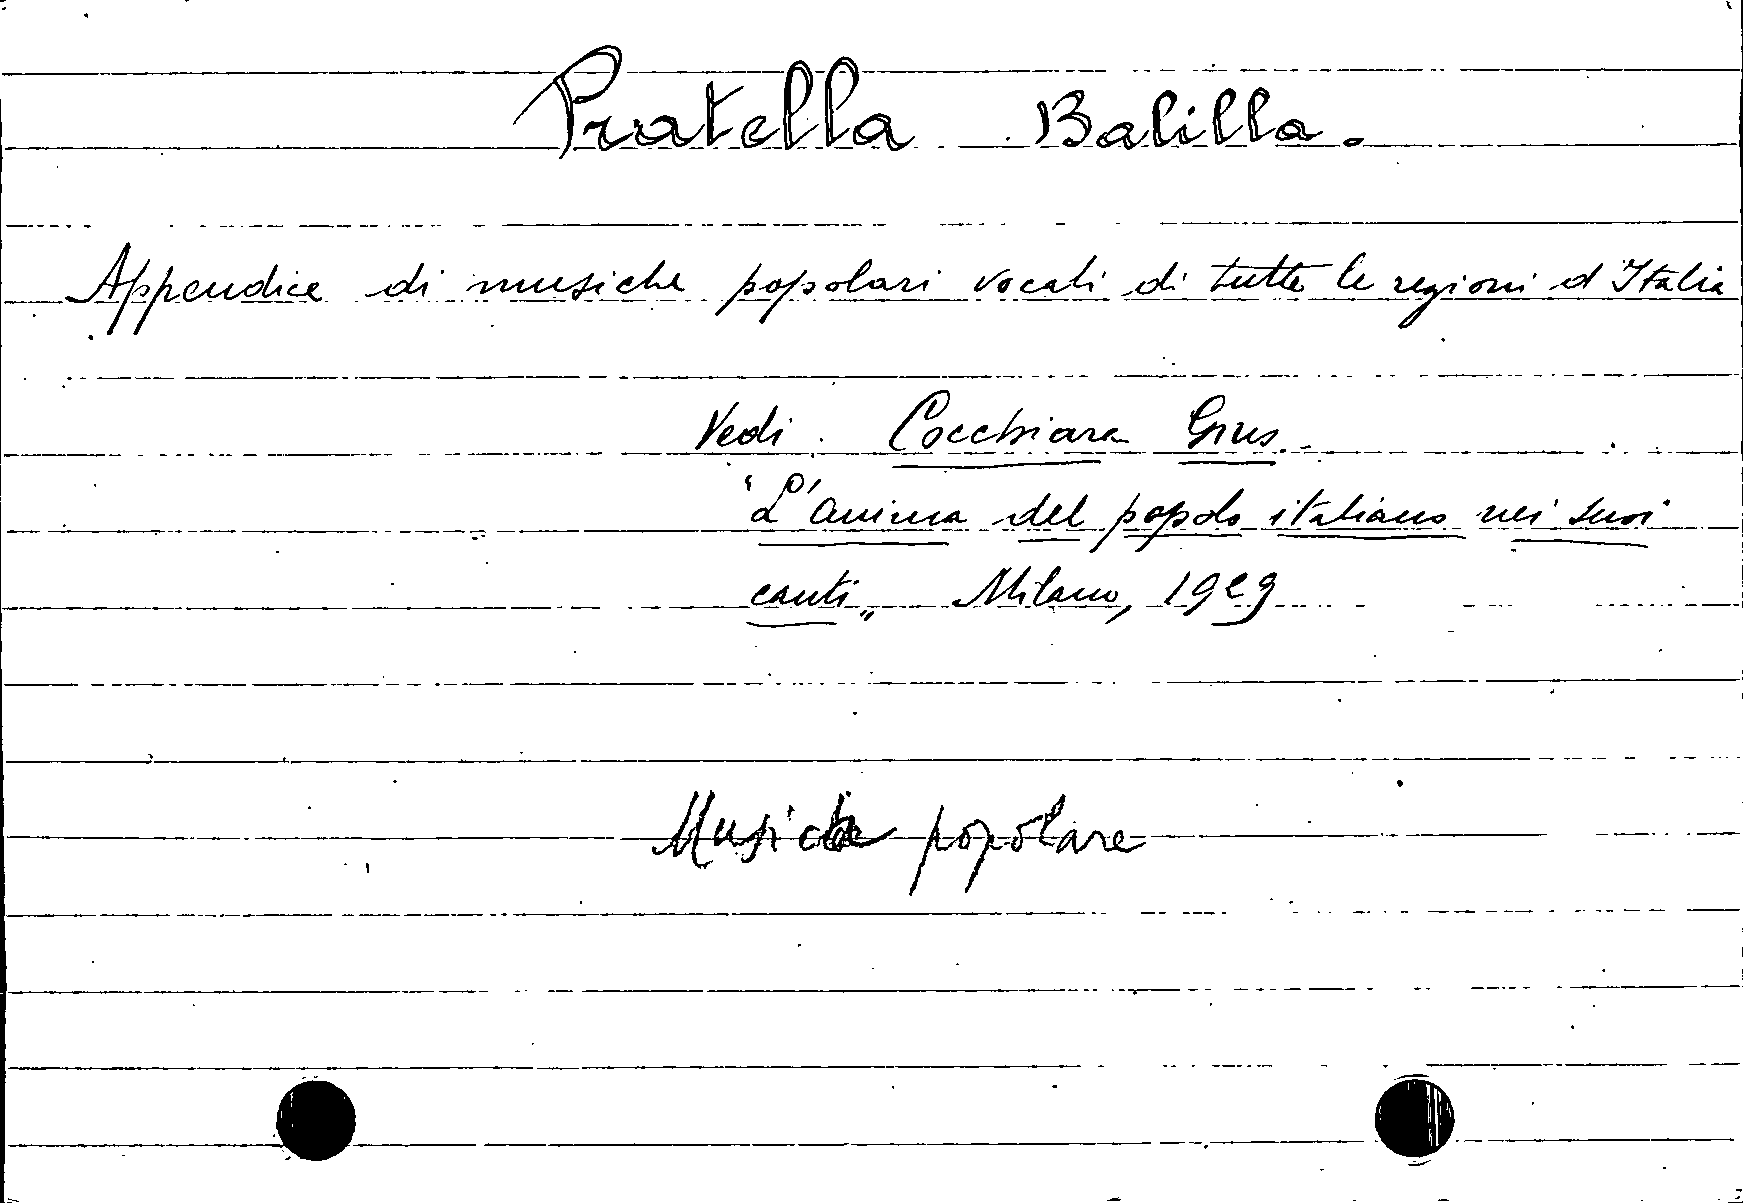 Pratella Balilla.
Appendice di musiche popolari vocali di tutte le regioni d'Italia
Vedi. Cocchiara Gius.
"L'anima del popolo italiano nei suoi
canti„ Milano, 1929
Musiche popolare